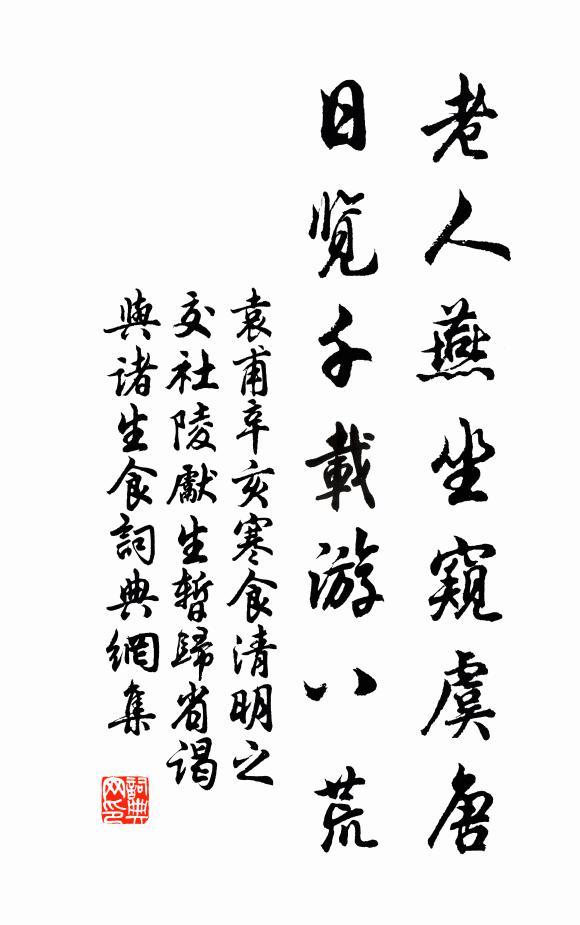 老人燕坐窺虞唐
日览千載游八荒
袁甫辛亥寒食清明之
交社陵獻生暫歸省谒
與诸生食詞典網集
詞典
网印